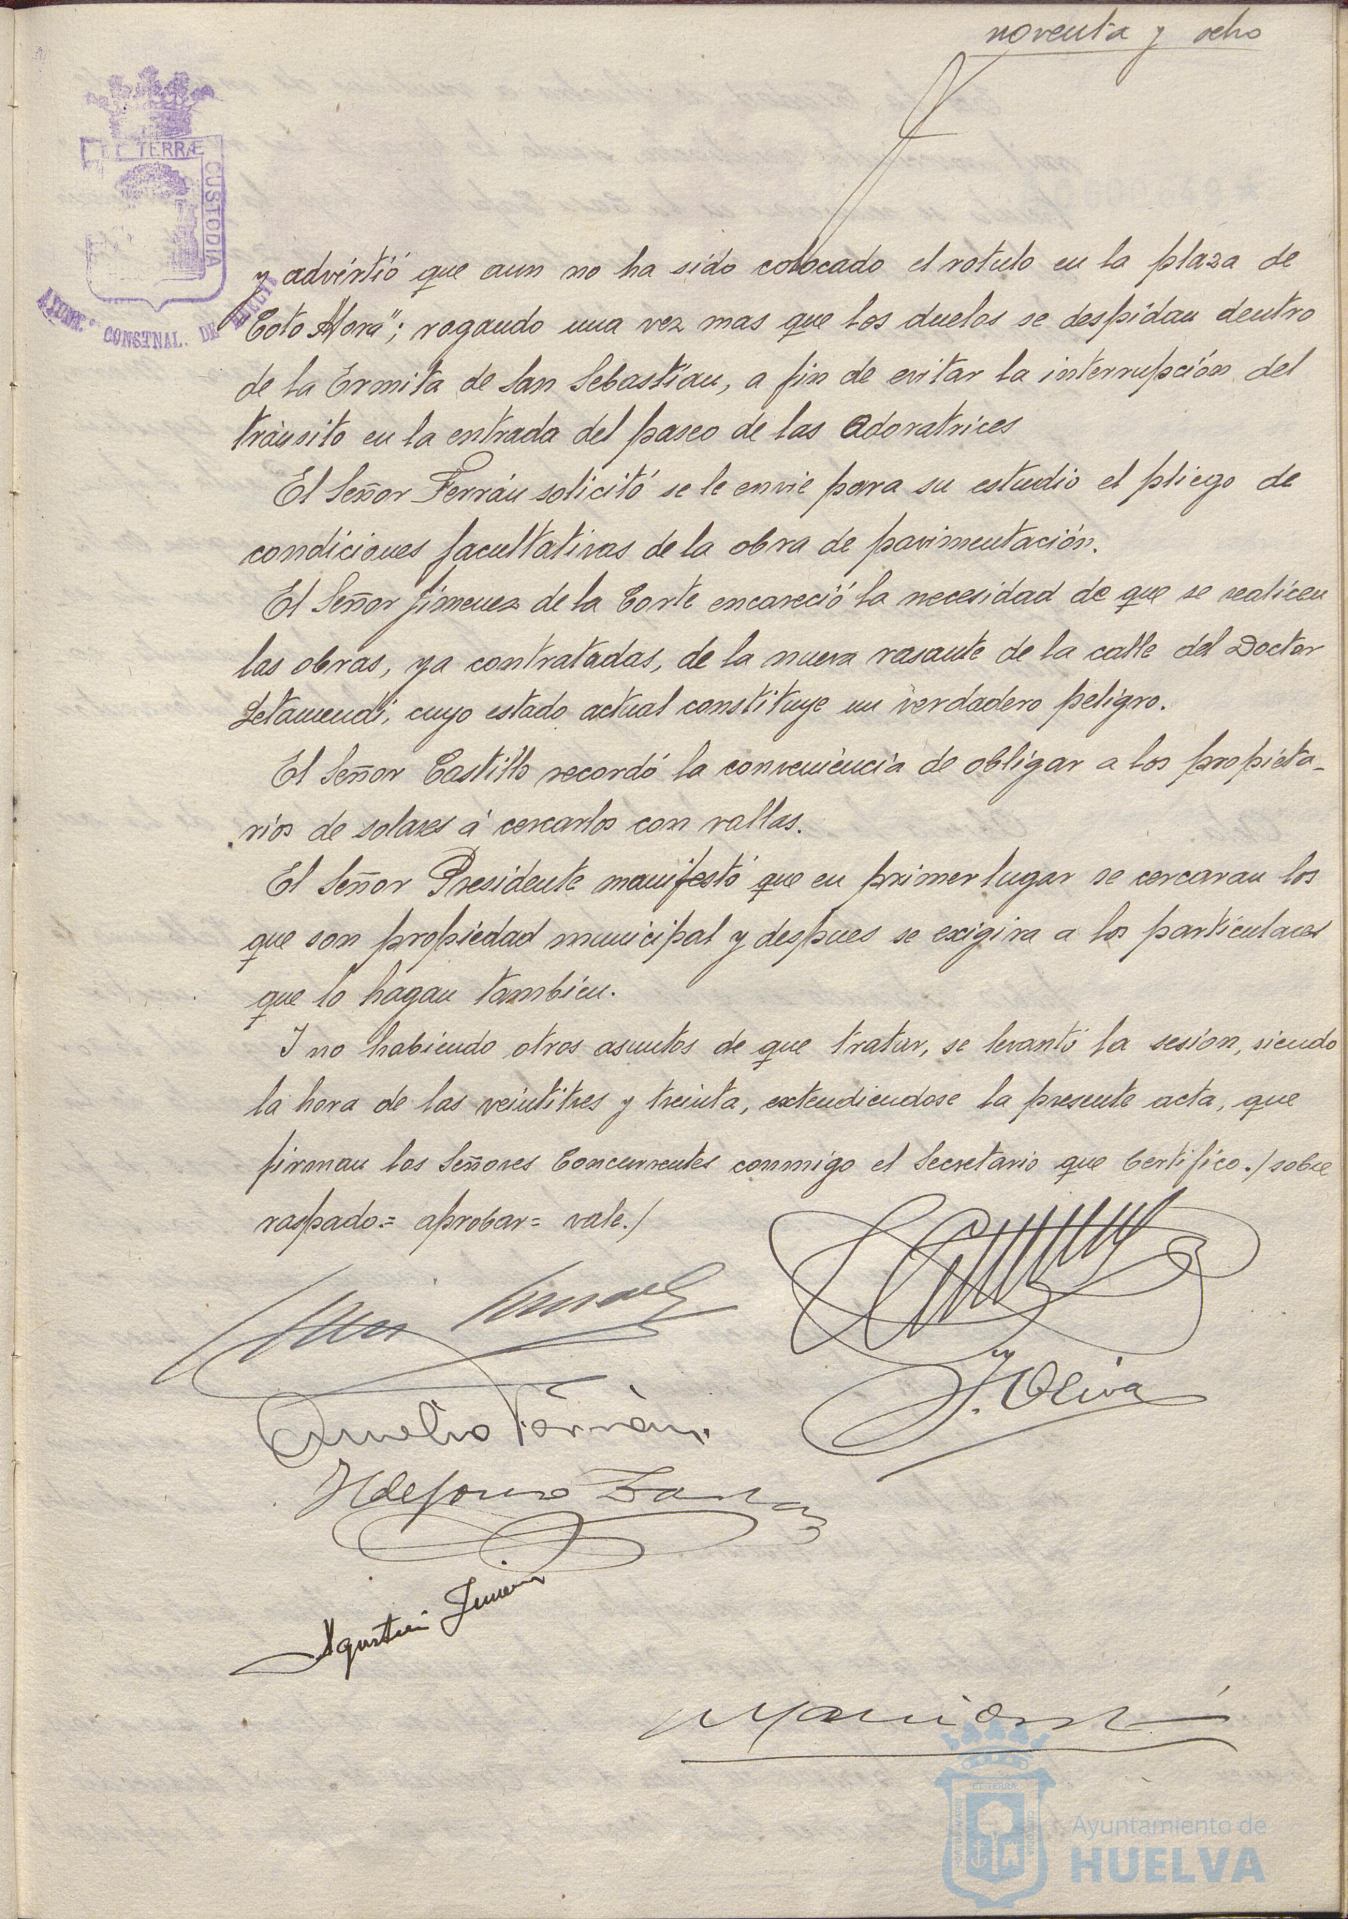 noventa y ocho
ET TERRÆ
CUSTODIA
AYUNT.º CONSTNAL. DE HUELVA
y advirtió que aun no ha sido colocado el rotulo en la plaza de
Coto Mora"; rogando una vez mas que los duelos se despidan dentro
de la Ermita de San Sebastian, a fin de evitar la interrupción del
tránsito en la entrada del paseo de las Adoratrices
El Señor Ferrán solicitó se le envie para su estudio el pliego de
condiciones facultativas de la obra de pavimentación.
El Señor Jimenez de la Corte encareció la necesidad de que se realicen
las obras, ya contratadas, de la nueva rasante de la calle del Doctor
Letamendi, cuyo estado actual constituye un verdadero peligro.
El Señor Castillo recordó la conveniencia de obligar a los propieta-
rios de solares á cercarlos con vallas.
El Señor Presidente manifestó que en primer lugar se cercaran los
que son propiedad municipal y despues se exigira a los particulares
que lo hagan tambien.
Y no habiendo otros asuntos de que tratar, se levantó la sesion, siendo
la hora de las veintitres y treinta, extendiendose la presente acta, que
firman los Señores Concurrentes conmigo el Secretario que Certifico./ sobre
raspado.= aprobar= vale./
J. Oliva
Aurelio Ferrán
Ildefonso
Agustin Jimenez
ET TERRÆ
Ayuntamiento de
HUELVA